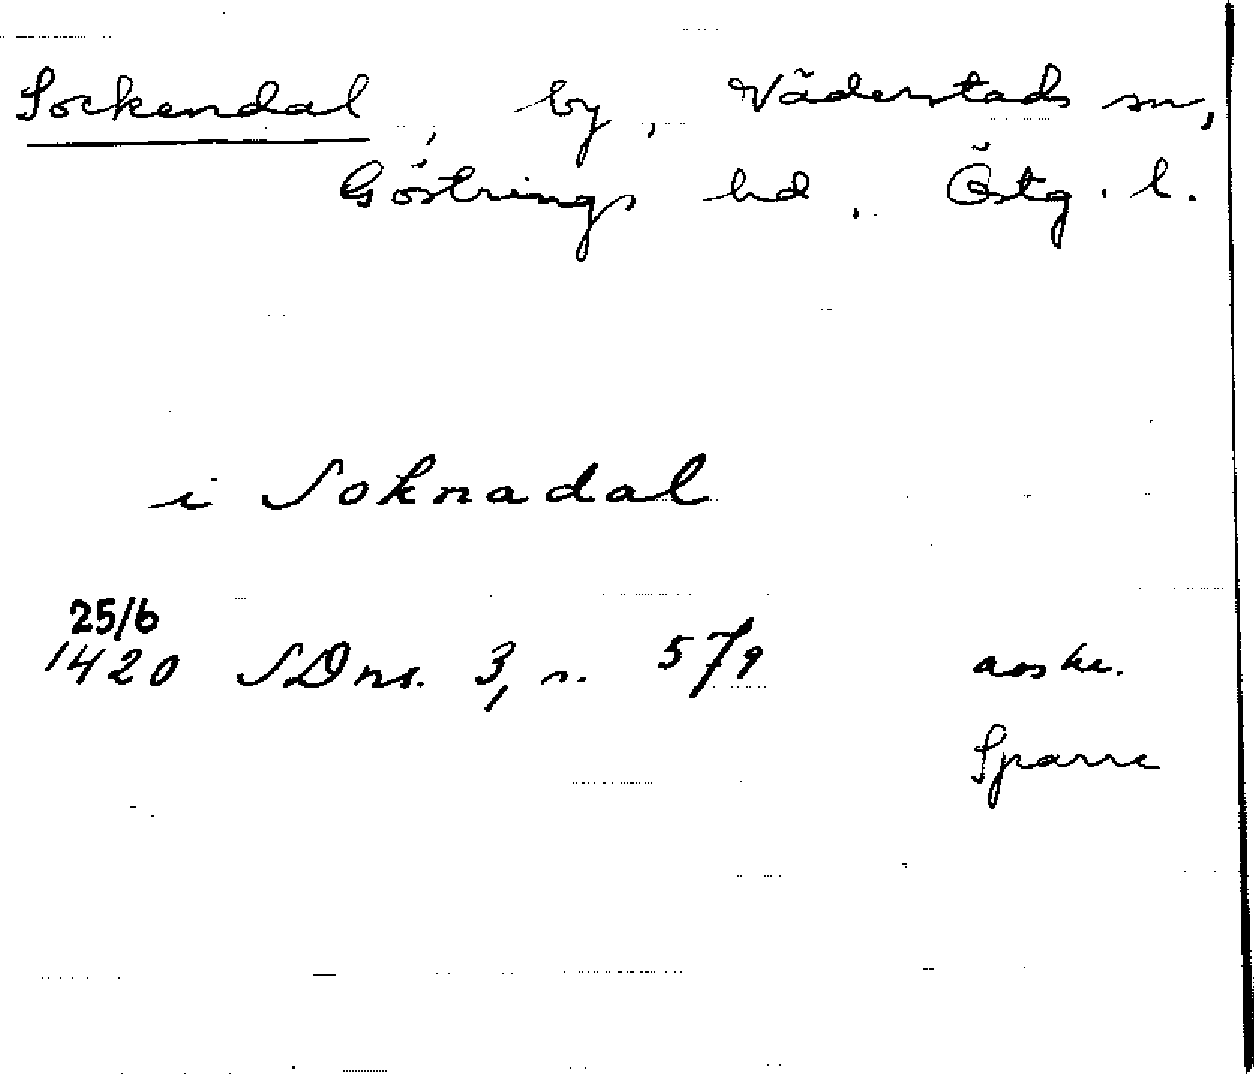 Sockendal, by, Väderstads sn,
Göstrings hd. Östg. l.
i Soknadal
25/6
1420 SDns. 3, s. 579 avskr.
Sparre